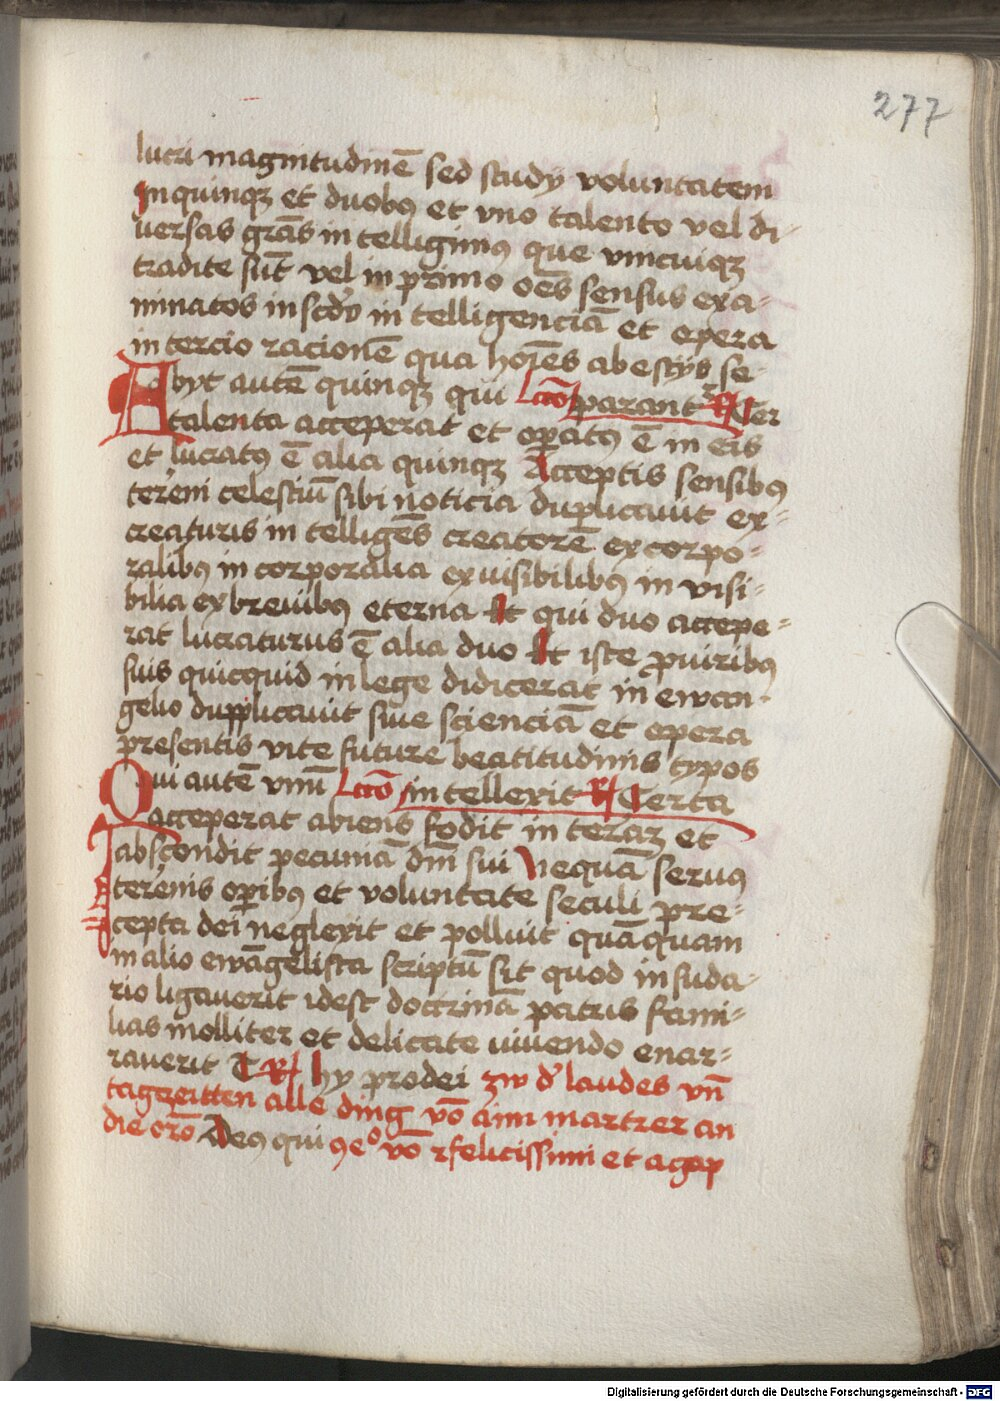 277
lucri magnitudinē sed study voluntatem
In quinqꝫ et duobꝰ et vno talento vel di-
uersas grās intelligimꝰ que vnicuiqꝫ
tradite sūt vel in primo oēs sensus exa-
minatos in scdō intelligenciā et opera
in tercio racionē qua hoīes a bestys se-
Abyt autē quinqꝫ qui Lccō parant℣ R Ter
talenta acceperat et opatꝰ ē in eis
et lucratꝰ ē alia quinqꝫ Acceptis sensibꝰ
tereni celestiū sibi noticia duplicauit ex-
creaturis intelligēs creatorē ex corpo-
ralibꝰ in corporalia ex uisibilibꝰ in visi-
bilia ex breuibꝰ eterna Et qui duo accepe-
rat lucraturus ē alia duo Et iste ꝓ uiribꝰ
suis quicquid in lege didicerat in ewan-
gelio dupplicauit siue scienciā et opera
presentis vite future beatitudinis typos
Qui autē vnū Lccō intellexit R Certa
acceperat abiens fodit in terāꝫ et
abscondit pecuniā dm̄ sui Nequā seruꝰ
terēnis opibꝰ et voluntate seculi pre-
cepta dei neglexit et polluit quāquam
in alio ewāgelista scriptū sit quod in suda-
rio ligauerit idest doctrinā patris fami-
lias molliter et delicate uiuendo enar-
rauerit R hy prodei zw dʼ laudes vn̄
tagzeitten alle ding vō aim martrer an
die orō Deꝰ qui ꝯeᵒ vō rfelicissimi et agap
Digitalisierung gefördert durch die Deutsche Forschungsgemeinschaft - DFG